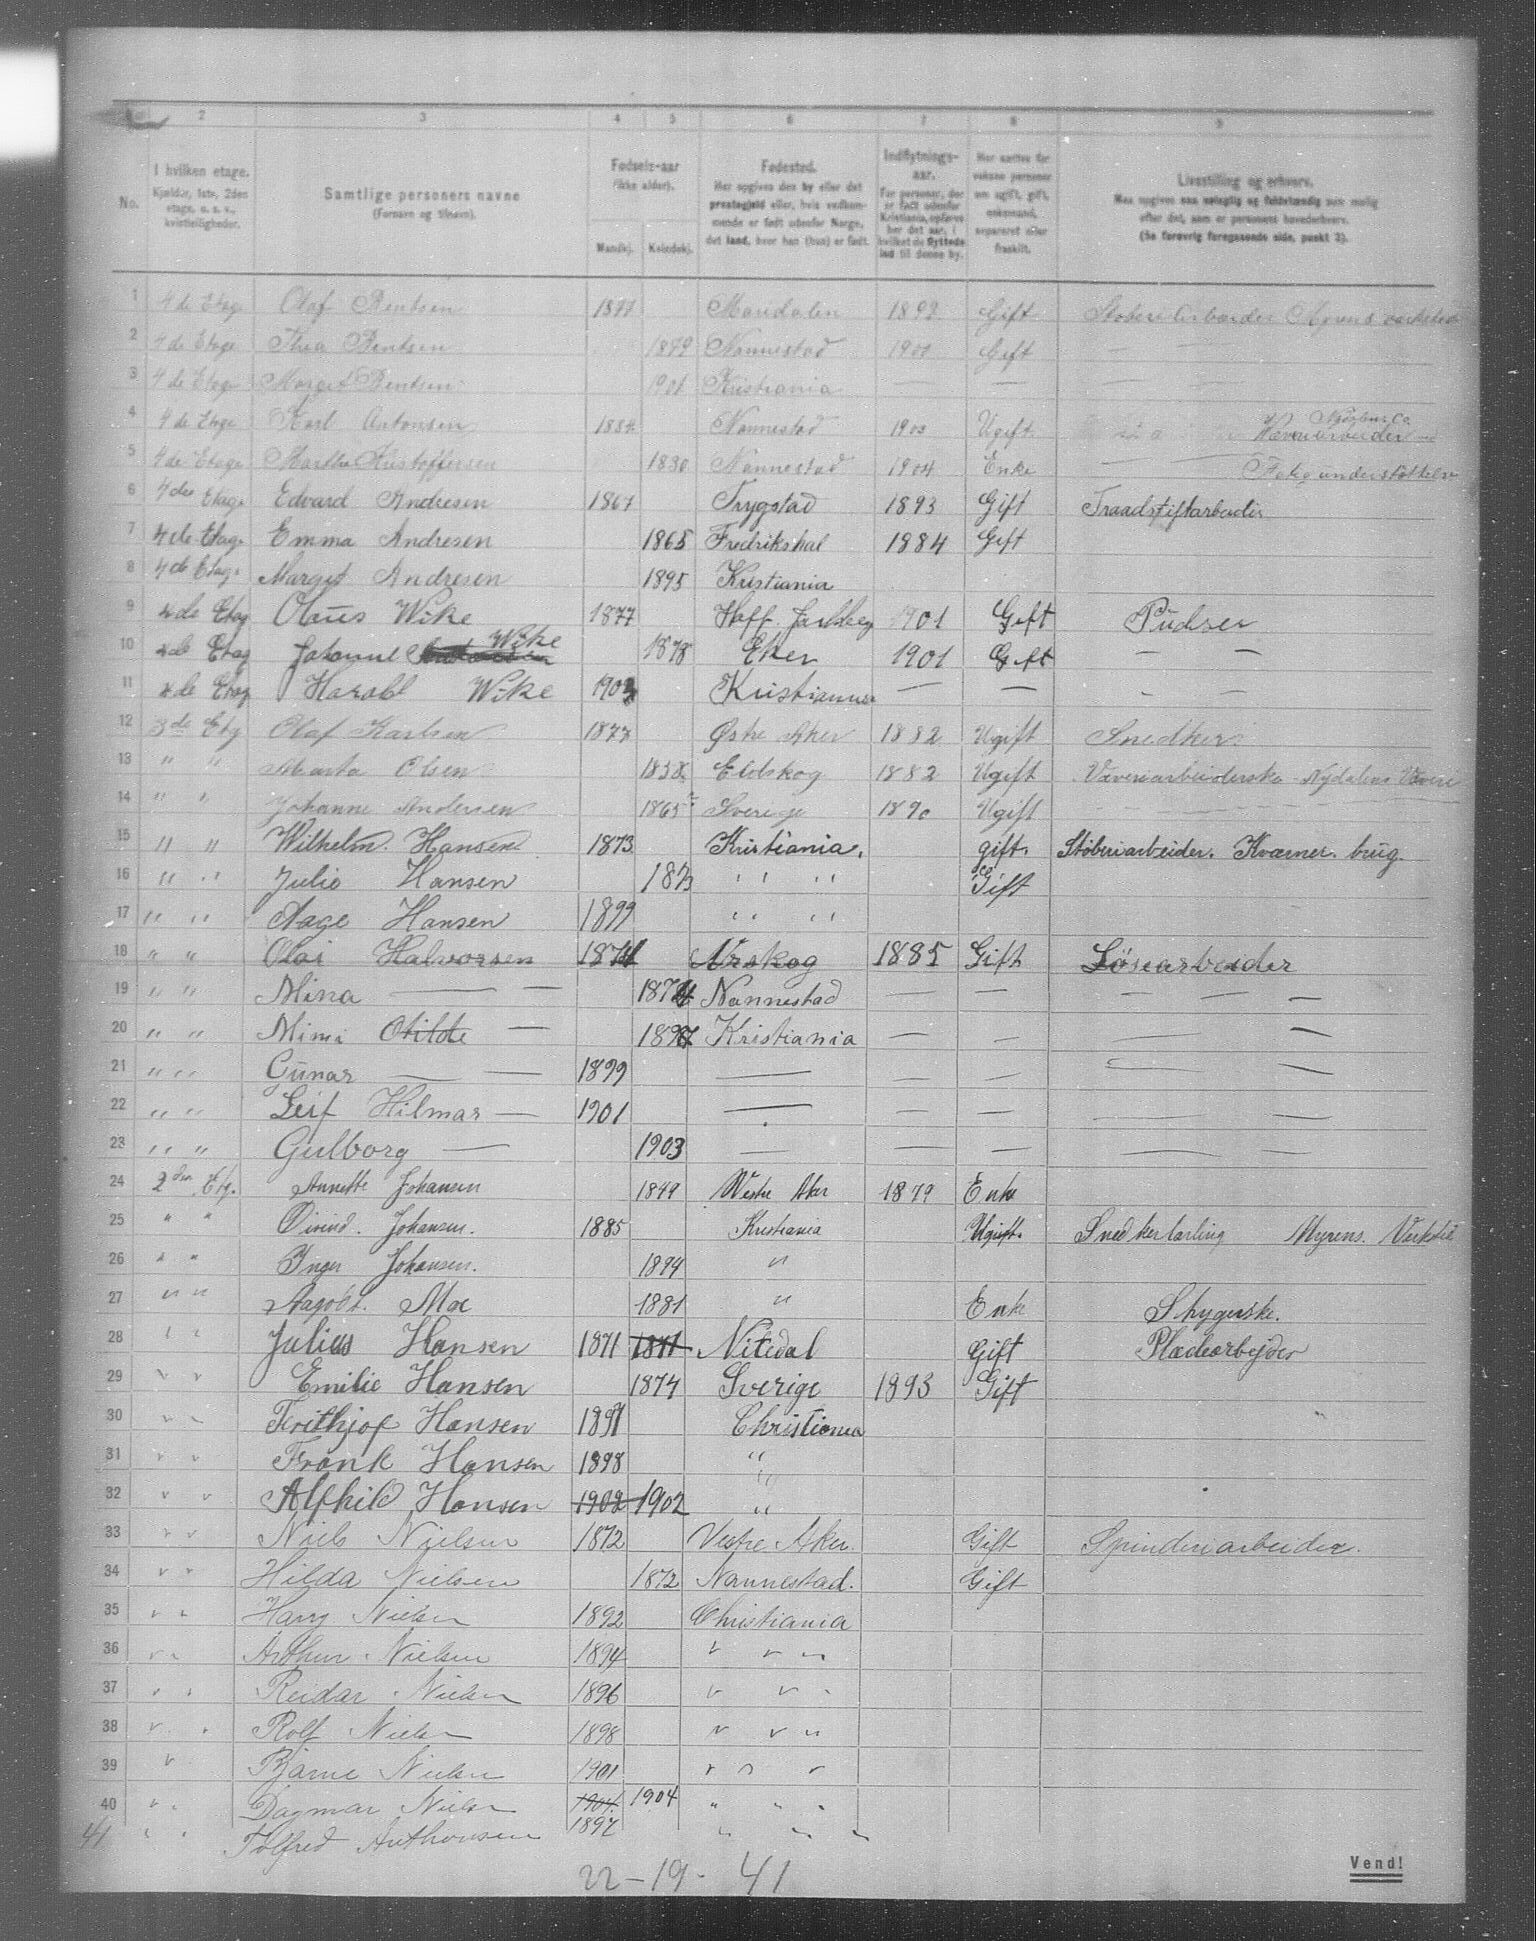 1 2 3 4 5 6 7 8 9
No. I hvilken etage. Kjelder, 1ste, 2den etage, o. s. v., kvistleiligheder. Samtlige personers navne (Fornavn og tilnavn). Fødsels-aar (ikke alder). Mandkj. Kvindekj. Fødested. Her opgives den by eller det præstegjeld eller, hvis vedkommende er født udenfor Norge, det land, hvor han (hun) er født. Indflytningsaar. For personer, der er født udenfor Kristiania, opføres her det aar, i hvilket de flyttede ind til denne by. Her sættes for voksne personer om ugift, gift, enkemand, separeret eller fraskilt. Livsstilling og erhverv. Maa opgives saa nøiagtig og fuldstændig som mulig efter det, som er personens hovederhverv. (Se forøvrig foregaaende side, punkt 3).
1 4de Etage Olaf Bentsen 1877 Maridalen 1892 Gift Støberiarbeider Myrens værksted
2 4de Etage Thea Bentsen 1879 Nannestad 1901 Gift — —
3 4de Etage Marget Bentsen 1901 Kristiania — —
4 4de Etage Karl Antonsen 1884 Nannestad 1903 Ugift Væveriarbeider
5 4de Etage Marthe Kristoffersen 1830 Nannestad 1904 Enke Fatigunderstøttelse
6 4de Etage Edvard Andresen 1867 Trygstad 1893 Gift Traadstiftarbeider
7 4de Etage Emma Andresen 1865 Fredrikshal 1884 Gift
8 4de Etage Marget Andresen 1895 Kristiania
9 4de Etag Olaus Wike 1877 Hoff. Jarlsberg 1901 Gift Pudser
10 4de Etag Johanne Wike 1878 Eker 1901 Gift — —
11 4de Etag Harald Wike 1903 Kristiania — —
12 3de Etg Olaf Karlsen 1877 Østre Aker 1882 Ugift Snedker
13 " " Marta Olsen 1838 Eidskog 1882 Ugift Væveriarbeiderske Nydalens Væveri
14 " " Johanne Andersen 1865 Sverige 1890 Ugift
15 " " Wilhelm Hansen 1873 Kristiania. gift. Støberiarbeider. Kværner brug.
16 " " Julie Hansen 1873 " " Gift
17 " " Aage Hansen 1899 " "
18 " " Olai Halvorsen 1874 Urskog 1885 Gift Løsearbeider
19 " " Mina — — 1874 Nannestad — — — — —
20 " " Mimi Otilde — 1897 Kristiania — — —
21 " " Gunar — — 1899 — — — — —
22 " " Leif Hilmar — 1901 — — — — —
23 " " Gulborg — 1903 — — — — —
24 2den Etg. Annette Johansen 1849 Westre Aker 1879 Enke
25 " " Oivind. Johansen. 1885 Kristiania Ugift. Snedkerlærling Myrens. Verksted
26 " " Inger Johansen. 1894 "
27 " " Aagodt. Moe 1881 " Enk Shygerske.
28 " " Julius Hansen 1871 1871 Nitedal Gift Pladearbejder
29 " " Emilie Hansen 1874 Sverige 1893 Gift
30 " " Frithjof Hansen 1891 Christiania
31 " " Frank Hansen 1898 "
32 " " Alfhild Hansen 1902 1902 "
33 " " Niels Nielsen 1872 Vestre Aker. Gift Spinderiarbeider.
34 " " Hilda Nielsen 1872 Nannestad. Gift
35 " " Harry Nielsen 1892 Christiania
36 " " Arthur Nielsen 1894 " " "
37 " " Reidar Nielsen 1896 " " "
38 " " Rolf Nielsen 1898 " " "
39 " Bjarne Nielsen 1901 " " "
40 " " Dagmar Nielsen 1904. 1904 " " "
41 " " Tolfred Anthonsen 1897 " " "
22 – 19 – 41
Vend!